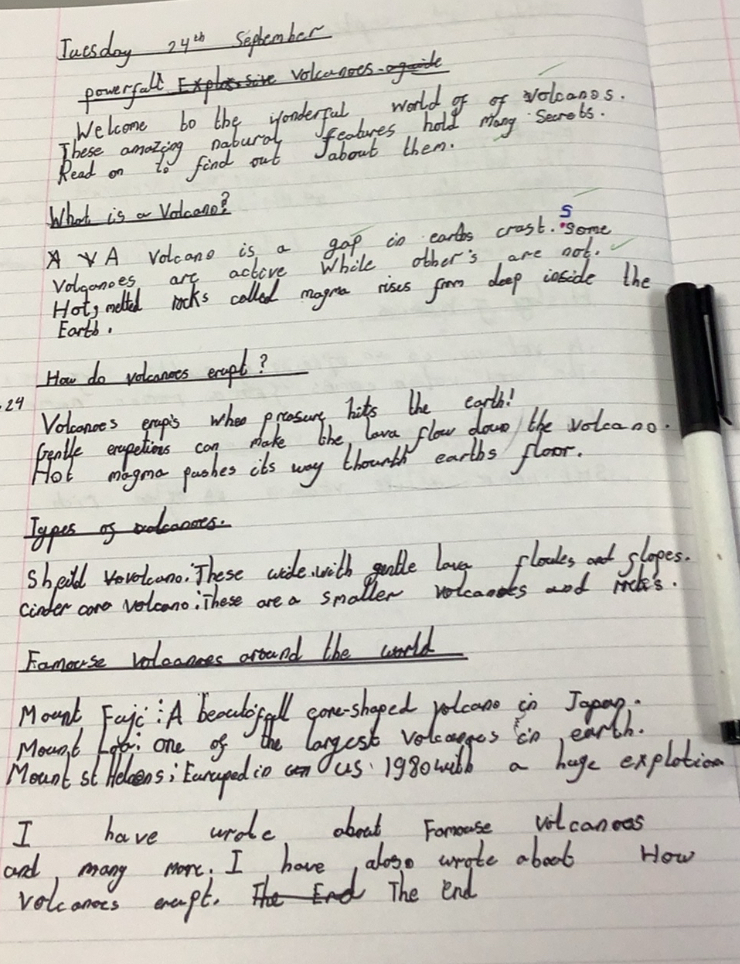 Tuesday 24th September
powerfull Explossive volcanoes guide
Welcome to the wonderful world of of volcanos.
These amazing natural features hold many secrets.
Read on to find out about them.
What is a Volcano?
A V A Volcano is a gap in earths crast. S some
Volganoes are active While other's are not.
Hot, melted rocks called magma rises from deep inside the
Earth.
How do volcanoes erupt?
.24
Volcanoes erupts when presure hits the earth!
Gentle erupetions can make the lava flow down the volcano.
Hot magma pushes its way thourth earths floor.
Types of volcanoes.
Sheild Vovolcano: These wide with gentle lava and slopes.
Cinder cone volcano: These are a smaller volcanoes and rocks.
Famouse volcanoes around the world
Mount Fuji: A beautifull cone-shaped volcano in Japan.
Mount one of the largest volcanoes in earth.
Mount st Helens: in US 1980 with a huge explotion
I have wrote about Famouse volcanoes
and many more. I have also wrote about How
volcanoes erupt. The End The End